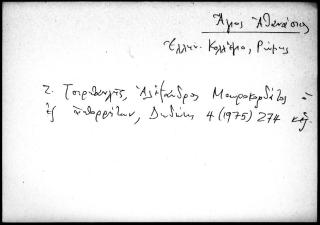 Ἅγιος Ἀθανάσιος
Ἑλλην. Κολλέγιο, Ρώμης
Ζ. Τσιρπανλῆς, Ἀλέξανδρος Μαυροκορδᾶτος ὁ
ἐξ ἀπορρήτων, Δωδώνη 4 (1975) 274 κἑξ.